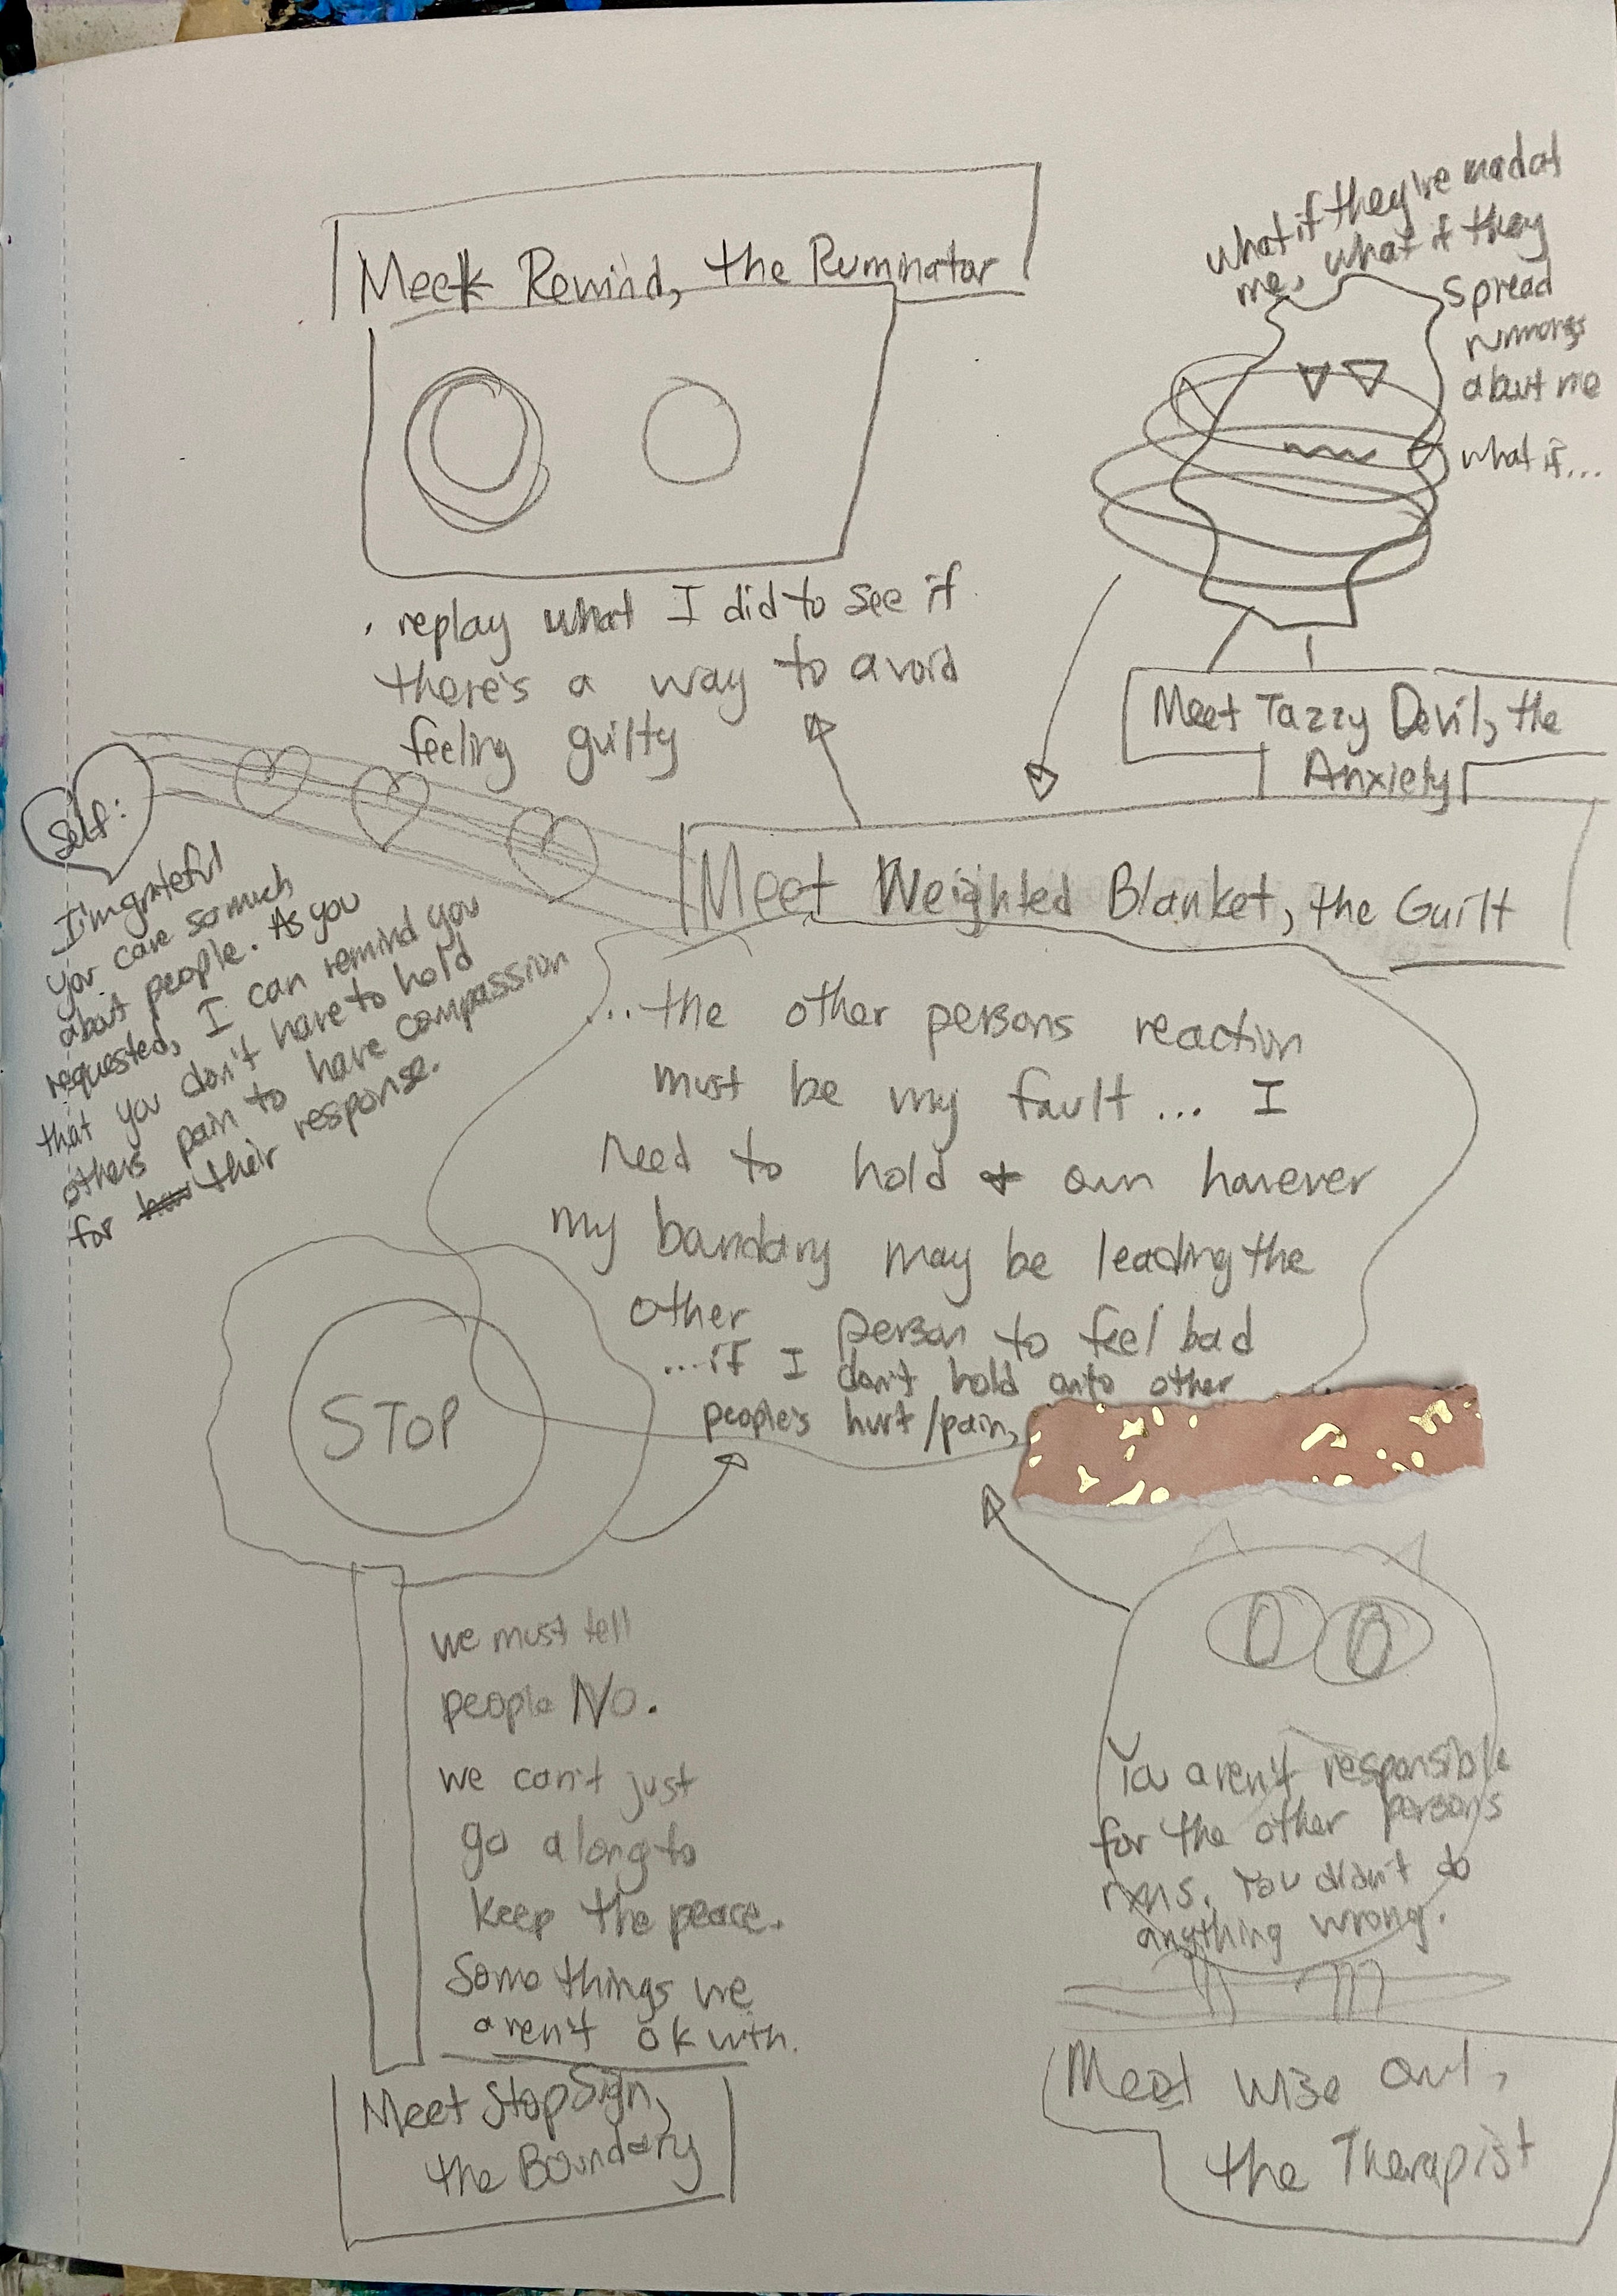 Meet Rewind, the Ruminator
• replay what I did to see if
there's a way to avoid
feeling guilty
what if they're mad at
me, what if they
spread
rumors
about me
what if...
Meet Tazzy Devil, the
Anxiety
Self:
I'm grateful
you care so much
about people. As you
requested, I can remind you
that you don't have to hold
others pain to have compassion
for their response.
Meet Weighted Blanket, the Guilt
...the other persons reaction
must be my fault... I
need to hold & own however
my boundary may be leading the
other person to feel bad
...if I don't hold onto other
people's hurt/pain,
STOP
we must tell
people No.
we can't just
go along to
keep the peace.
Some things we
aren't ok with.
Meet Stop Sign,
the Boundary
You aren't responsible
for the other persons
rxns. You didn't do
anything wrong.
Meet Wise Owl,
the Therapist